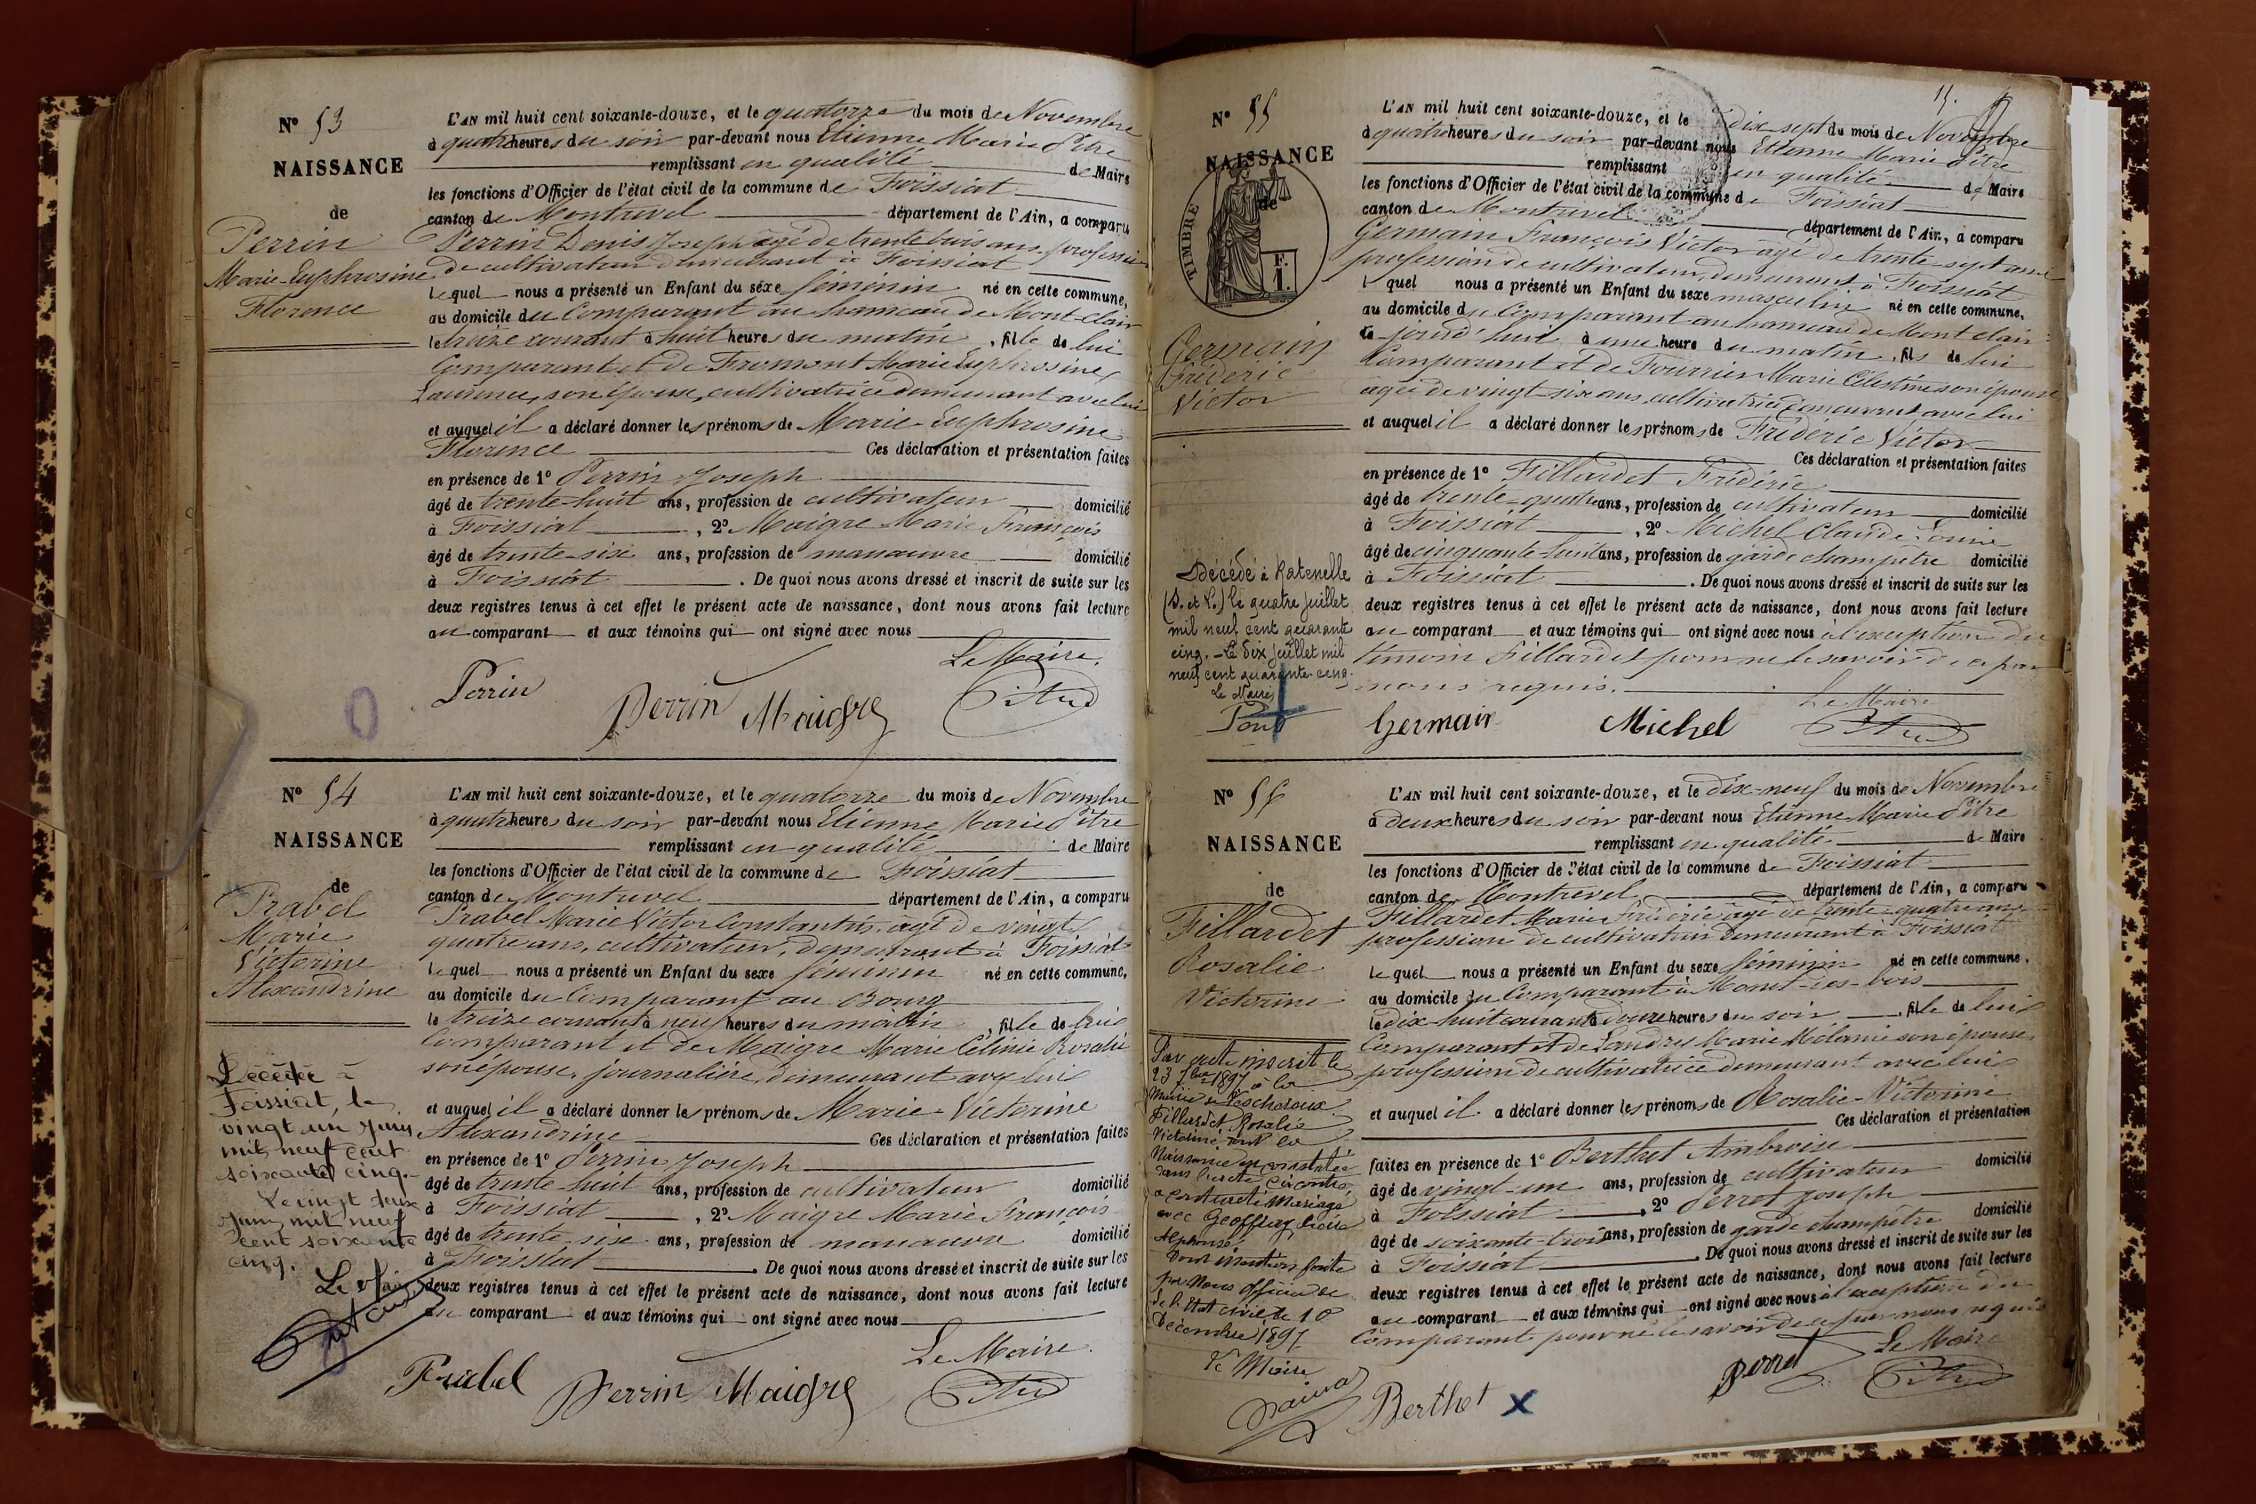 N° 53
NAISSANCE
de
Perrin
Marie-Euphrosine
Florence
L'AN mil huit cent soixante-douze, et le quatorze du mois de Novembre
à quatre heures du soir par-devant nous Etienne Marie Pitre
remplissant en qualité de Maire
les fonctions d'Officier de l'état civil de la commune de Foissiat
canton de Montrevel département de l'Ain, a comparu
Perrin Denis Joseph âgé de trente trois ans, profession
de cultivateur demeurant à Foissiat
lequel nous a présenté un Enfant du sexe féminin né en cette commune,
au domicile du Comparant au hameau de Mont-clair
le treize courant à huit heures du matin, fille de lui
Comparant et de Fromont Marie Euphrosine
Laurence, son épouse, cultivatrice demeurant avec lui
et auquel il a déclaré donner les prénoms de Marie-Euphrosine
Florence Ces déclaration et présentation faites
en présence de 1° Perrin Joseph
âgé de trente-huit ans, profession de cultivateur domicilié
à Foissiat, 2° Maigre Marie François
âgé de trente-six ans, profession de manœuvre domicilié
à Foissiat. De quoi nous avons dressé et inscrit de suite sur les
deux registres tenus à cet effet le présent acte de naissance, dont nous avons fait lecture
au comparant et aux témoins qui ont signé avec nous
Le Maire.
Perrin Perrin Maigre Pitre
N° 54
NAISSANCE
de
Prabel
Marie
Victorine
Alexandrine
L'AN mil huit cent soixante-douze, et le quatorze du mois de Novembre
à quatre heures du soir par-devant nous Etienne Marie Pitre
remplissant en qualité de Maire
les fonctions d'Officier de l'état civil de la commune de Foissiat
canton de Montrevel département de l'Ain, a comparu
Prabel Marie Victor Constantin, âgé de vingt
quatre ans, cultivateur, demeurant à Foissiat
lequel nous a présenté un Enfant du sexe féminin né en cette commune,
au domicile du Comparant au Bourg
le treize courant à neuf heures du matin, fille de lui
Comparant et de Maigre Marie Célinie Rosalie
son épouse, journalière, demeurant avec lui
et auquel il a déclaré donner les prénoms de Marie-Victorine
Alexandrine Ces déclaration et présentation faites
en présence de 1° Perrin Joseph
âgé de trente-huit ans, profession de cultivateur domicilié
à Foissiat, 2° Maigre Marie François
âgé de trente-six ans, profession de manœuvre domicilié
à Foissiat. De quoi nous avons dressé et inscrit de suite sur les
deux registres tenus à cet effet le présent acte de naissance, dont nous avons fait lecture
au comparant et aux témoins qui ont signé avec nous
Le Maire.
Prabel Perrin Maigre Pitre
Décédée à
Foissiat, le
vingt un juin
mil neuf cent
soixante cinq.
Le vingt deux
juin mil neuf
cent soixante
cinq.
Le Maire
15.
N° 55
NAISSANCE
de
TIMBRE
F.
1.
Germain
Fréderic
Victor
L'AN mil huit cent soixante-douze, et le dix sept du mois de Novembre
à quatre heures du soir par-devant nous Etienne Marie Pitre
remplissant en qualité de Maire
les fonctions d'Officier de l'état civil de la commune de Foissiat
canton de Montrevel département de l'Ain, a comparu
Germain François Victor âgé de trente-sept ans
profession de cultivateur, demeurant à Foissiat
lequel nous a présenté un Enfant du sexe masculin né en cette commune,
au domicile du Comparant au hameau de Mont clair
ce jourd'huit à une heure du matin, fils de lui
Comparant et de Fournier Marie Célestine son épouse
agée de vingt-six ans, cultivatrice demeurant avec lui
et auquel il a déclaré donner les prénoms de Fréderic Victor
Ces déclaration et présentation faites
en présence de 1° Fillardet Fréderic
âgé de trente-quatre ans, profession de cultivateur domicilié
à Foissiat, 2° Michel Claude
âgé de cinquante-huit ans, profession de garde champêtre domicilié
à Foissiat. De quoi nous avons dressé et inscrit de suite sur les
deux registres tenus à cet effet le présent acte de naissance, dont nous avons fait lecture
au comparant et aux témoins qui ont signé avec nous à l'exception du
témoin Fillardet pour ne le savoir de ce par
nous requis.
Le Maire
Germain Michel Pitre
Décédé à Ratenelle
(S. et L.) le quatre juillet
mil neuf cent quarante
cinq. - Le dix juillet mil
neuf cent quarante-cinq.
Le Maire
N° 56
NAISSANCE
de
Fillardet
Rosalie
Victorine
L'AN mil huit cent soixante-douze, et le dix-neuf du mois de Novembre
à deux heures du soir par-devant nous Etienne Marie Pitre
remplissant en qualité de Maire
les fonctions d'Officier de l'état civil de la commune de Foissiat
canton de Montrevel département de l'Ain, a comparu
Fillardet Marie Fréderic âgé de trente-quatre ans
profession de cultivateur demeurant à Foissiat
lequel nous a présenté un Enfant du sexe féminin né en cette commune,
au domicile du Comparant à Monet-les-bois
le dix-huit courant à onze heures du soir, fille de lui
Comparant et de Landry Marie Mélanie son épouse
profession de cultivatrice demeurant avec lui
et auquel il a déclaré donner les prénoms de Rosalie-Victorine
Ces déclaration et présentation
faites en présence de 1° Berthet Ambroise
âgé de vingt-un ans, profession de cultivateur domicilié
à Foissiat, 2° Perret Joseph
âgé de soixante-trois ans, profession de garde champêtre domicilié
à Foissiat. De quoi nous avons dressé et inscrit de suite sur les
deux registres tenus à cet effet le présent acte de naissance, dont nous avons fait lecture
au comparant et aux témoins qui ont signé avec nous à l'exception du
Comparant pour ne le savoir de ce par nous requis
Le Maire
Berthet x Perret Pitre
Par acte inscrit le
23 9bre 1897 à la
Mairie de Lescheroux
Fillardet Rosalie
Victorine dont la
Naissance est constatée
dans l'acte ci contre,
a contracté Mariage
avec Geoffray
Alphonse
Dont mention faite
par Nous officier de
de l'Etat civil, le 10
Décembre 1897
Le Maire